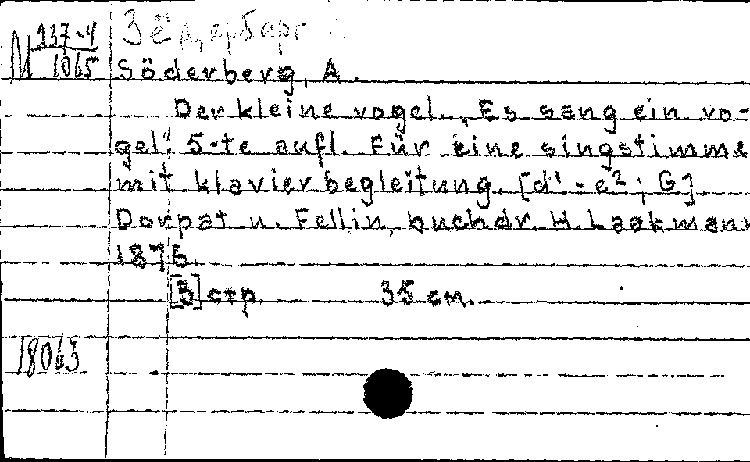 М 937-4
1065
Зёдербарг
Söderberg, A.
Der kleine vogel. „Es sang ein vo-
gel". 5-te aufl. Für eine singstimme
mit klavierbegleitung. [d¹-e²; G]
Dorpat u. Fellin, buchdr. H. Laakmann
1875.
[3] стр. 35 см.
18063